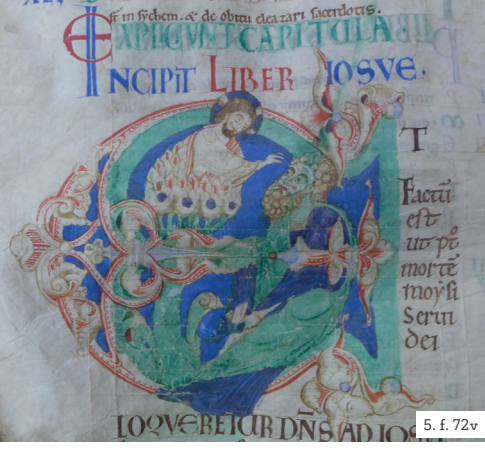 in sychem. & de obitu eleazari sacerdotis.
EXPLICIUNT CAPITULA
INCIPIT LIBER IOSVE.
T
Factū
est
ut pꝰ
mortē
moysi
serui
dei
LOQVERETUR DN̄S AD IOSUE
5. f. 72v